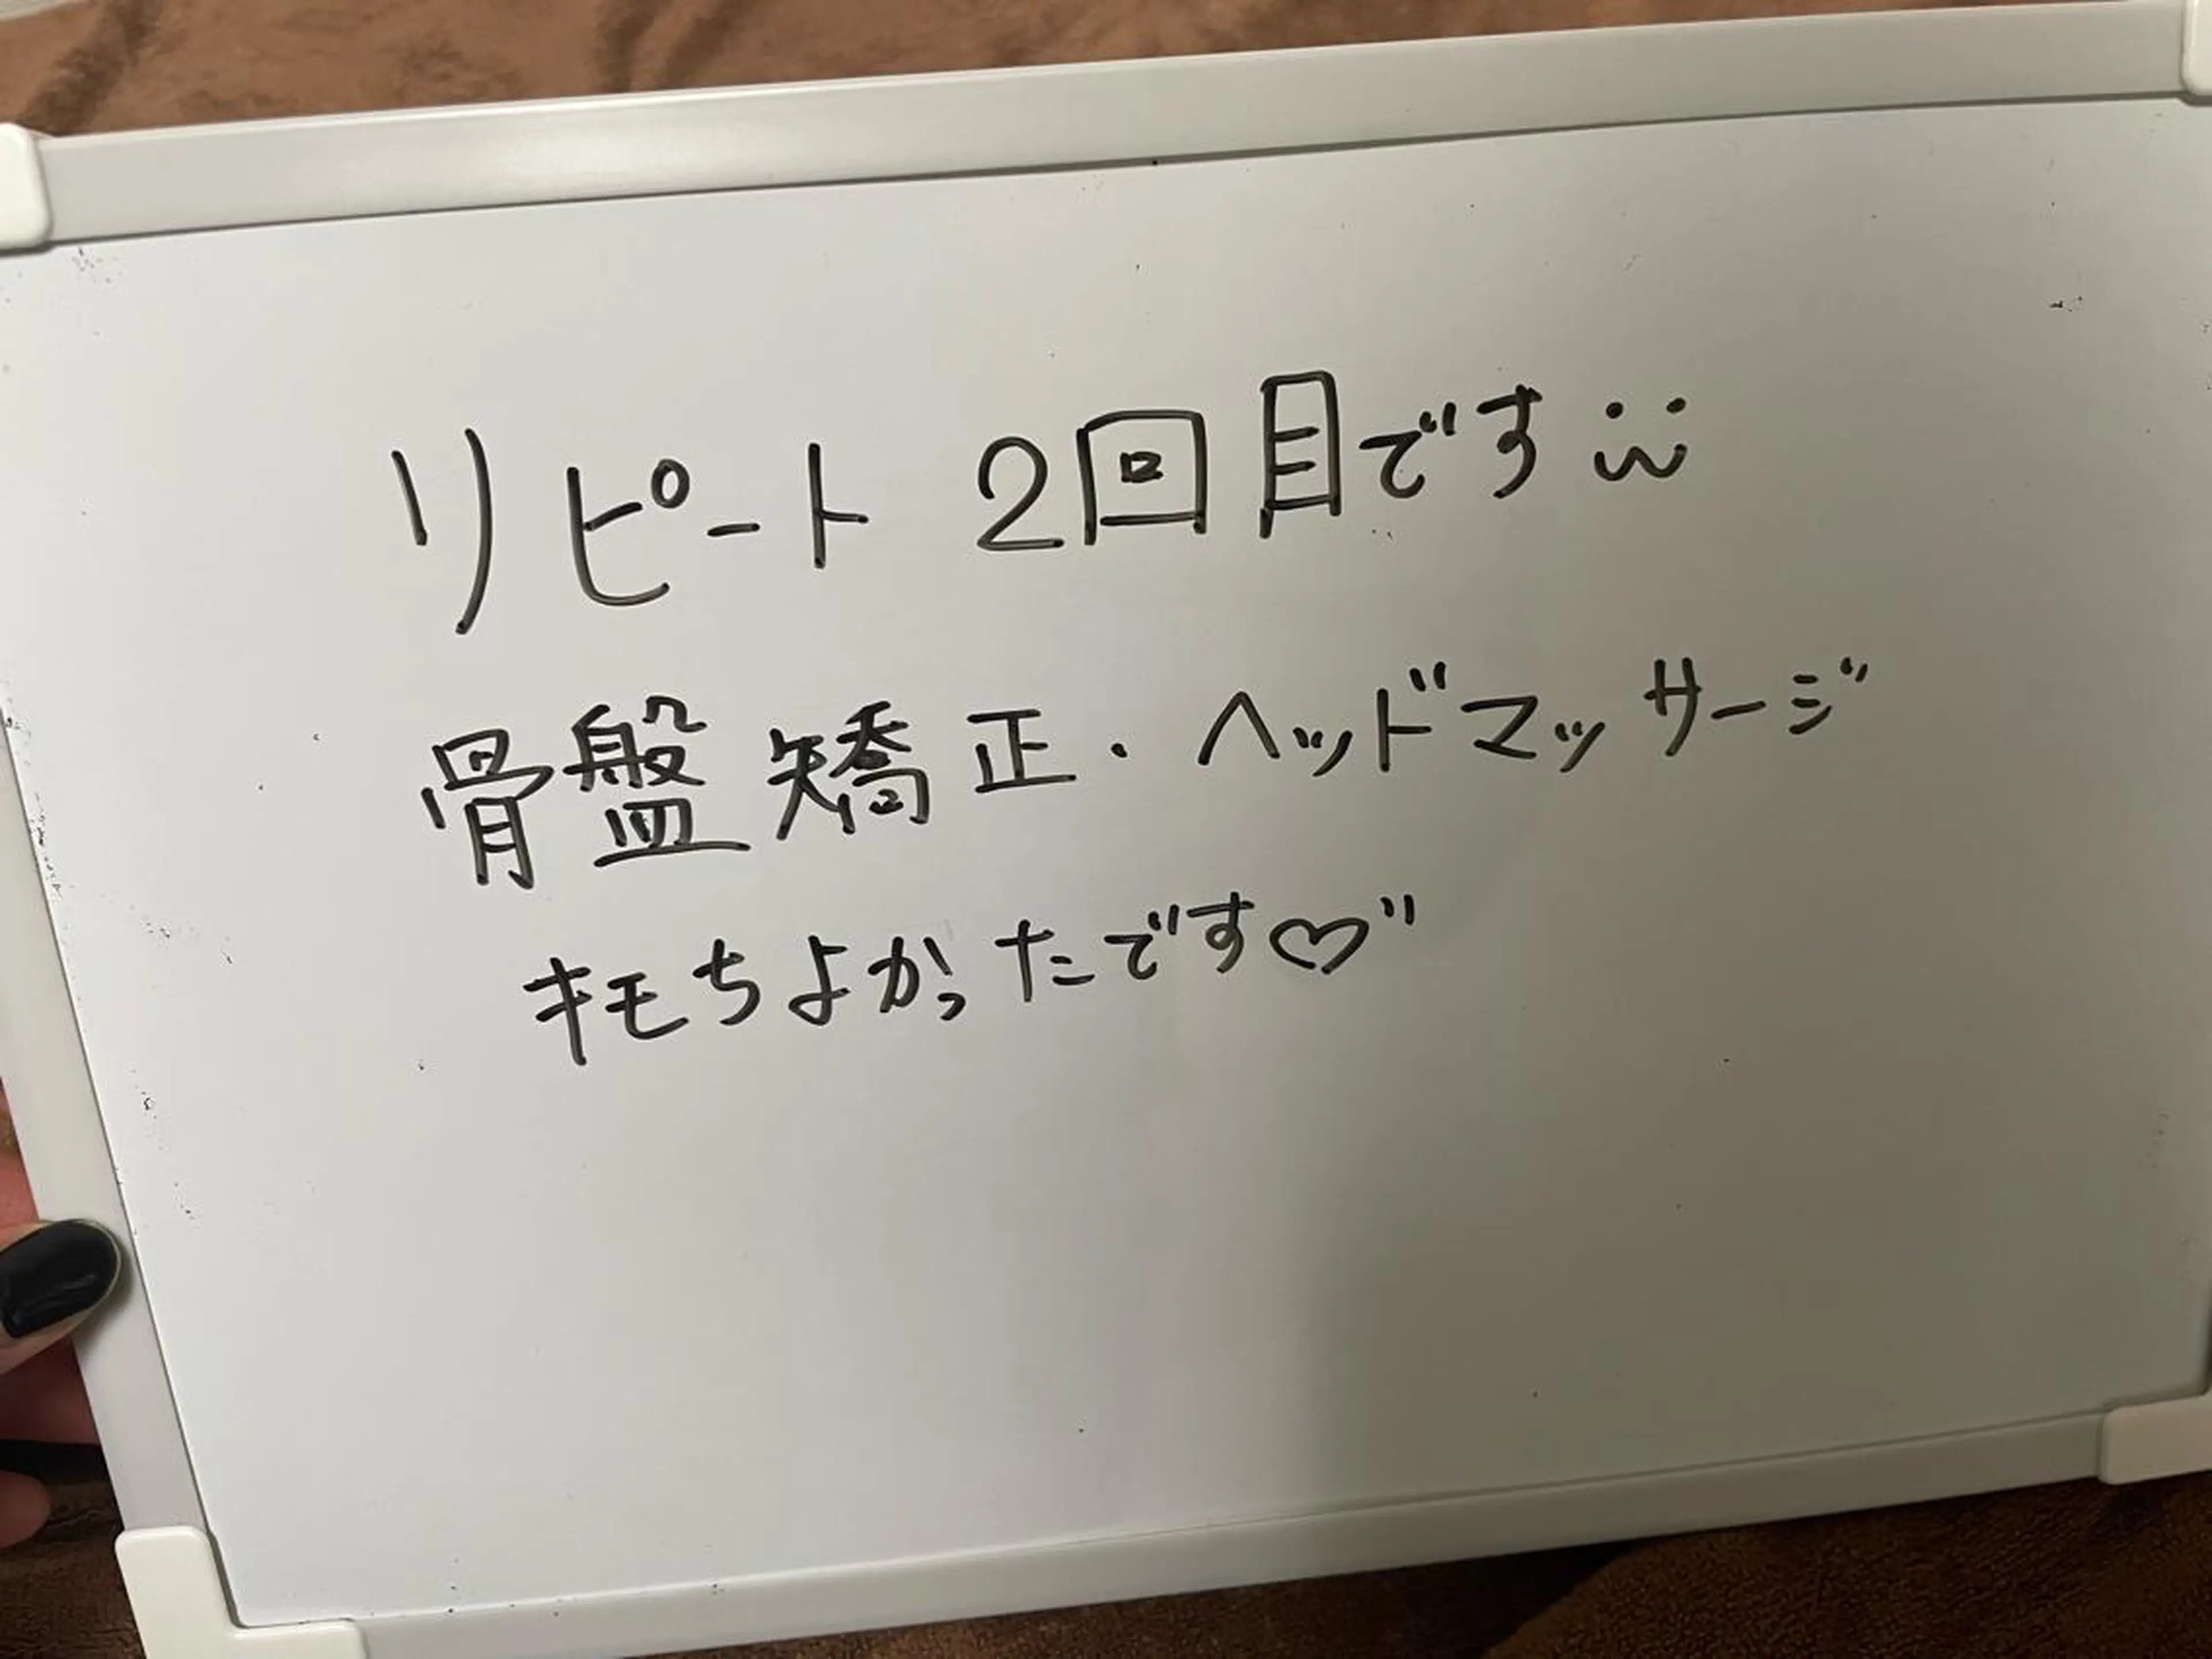 リピート 2回目です ¨̮
骨盤矯正・ヘッドマッサージ
キモちよかったです♡"